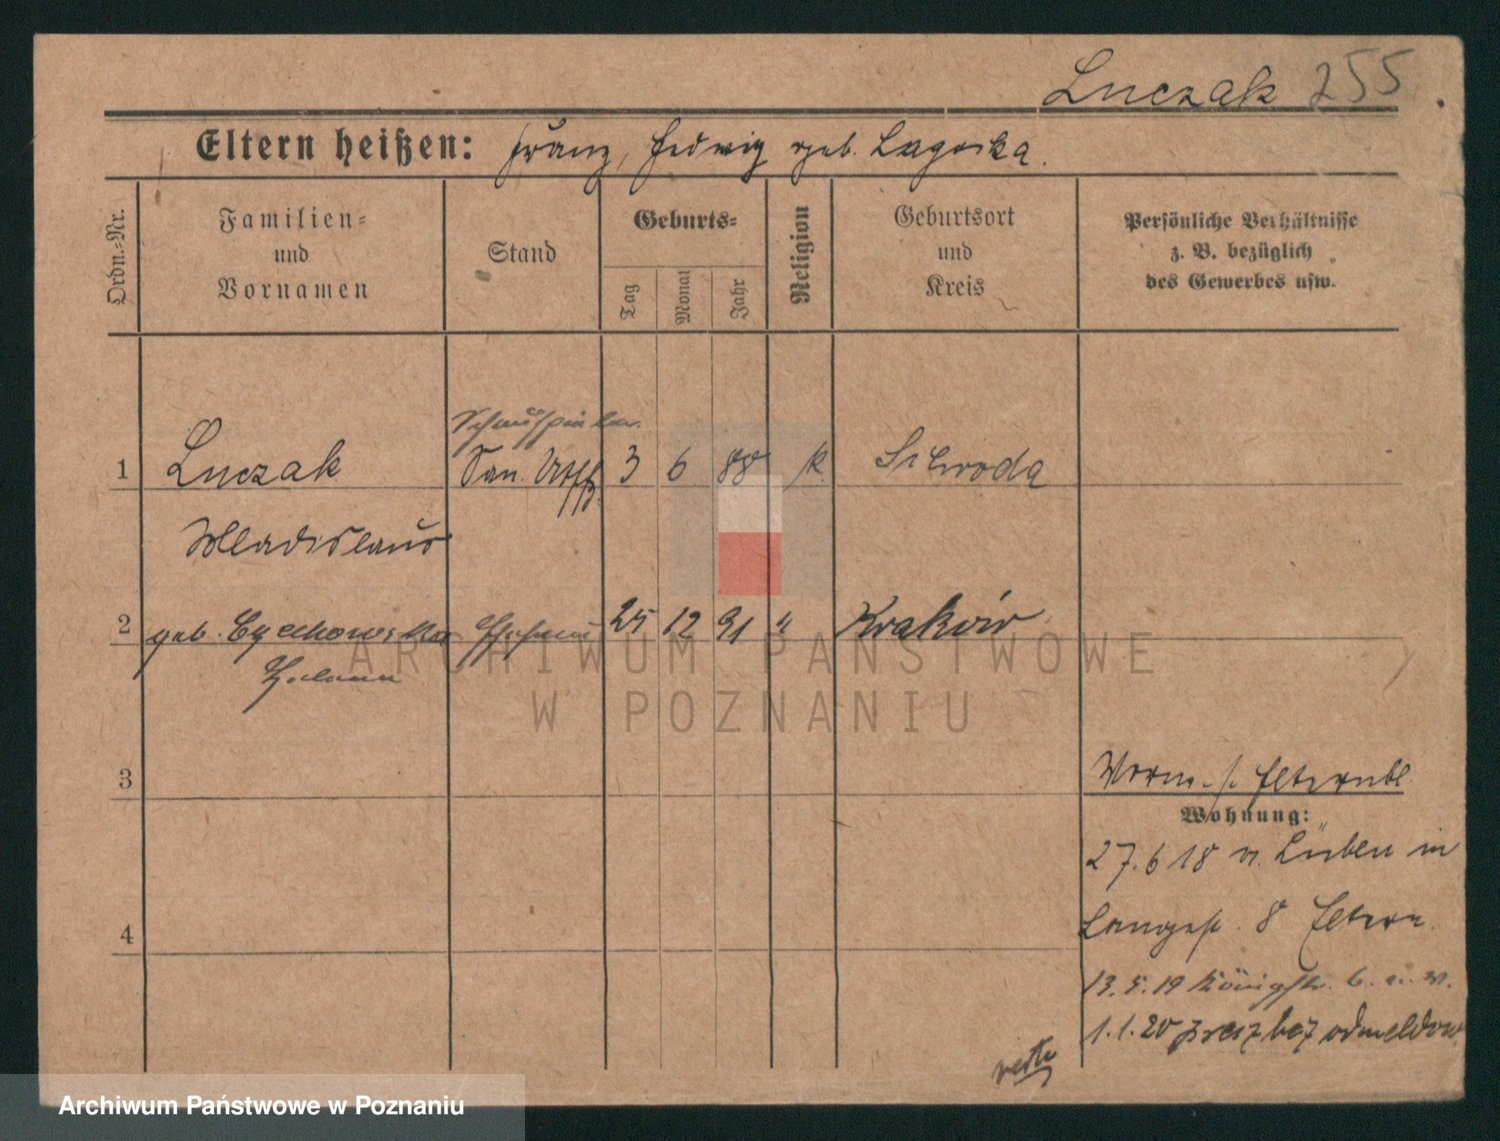 Luczak 255
Eltern heißen: Franz, Hedwig geb. Lagocka.
Ordn.-Nr.
Familien-
und
Vornamen
Stand
Geburts-
Tag
Monat
Jahr
Religion
Geburtsort
und
Kreis
Persönliche Verhältnisse
z. B. bezüglich
des Gewerbes usw.
Schauspieler
1 Luczak San. 3 6 88 k.
Wladislaus
2 geb. Ehefrau 25 12 91 " Kraków
Helena
ARCHIWUM PAŃSTWOWE
W POZNANIU
3
Vorm. s. Elternbl.
Wohnung:
27.6 18 v. Lüben in
4 Langestr. 8 Eltern
13.5.19 Königstr. 6.
1.1.20 odmeldow.
verte
Archiwum Państwowe w Poznaniu